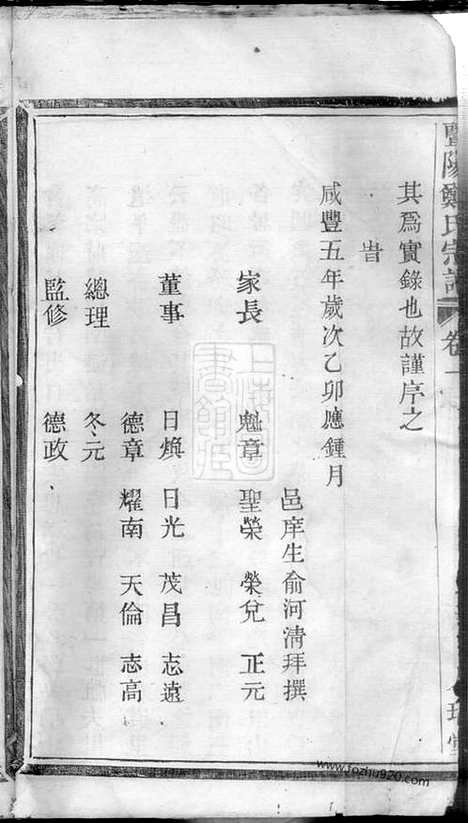 其為實錄也故謹序之
旹
咸豐五年歲次乙卯應鍾月
邑庠生俞河清拜撰
家長 魁章 聖榮 榮兌 正元
董事 日煥 日光 茂昌 志遠
德章 耀南 天倫 志高
總理 冬元
監修 德政
暨陽鄭氏宗譜 卷一
www.fozhu920.com